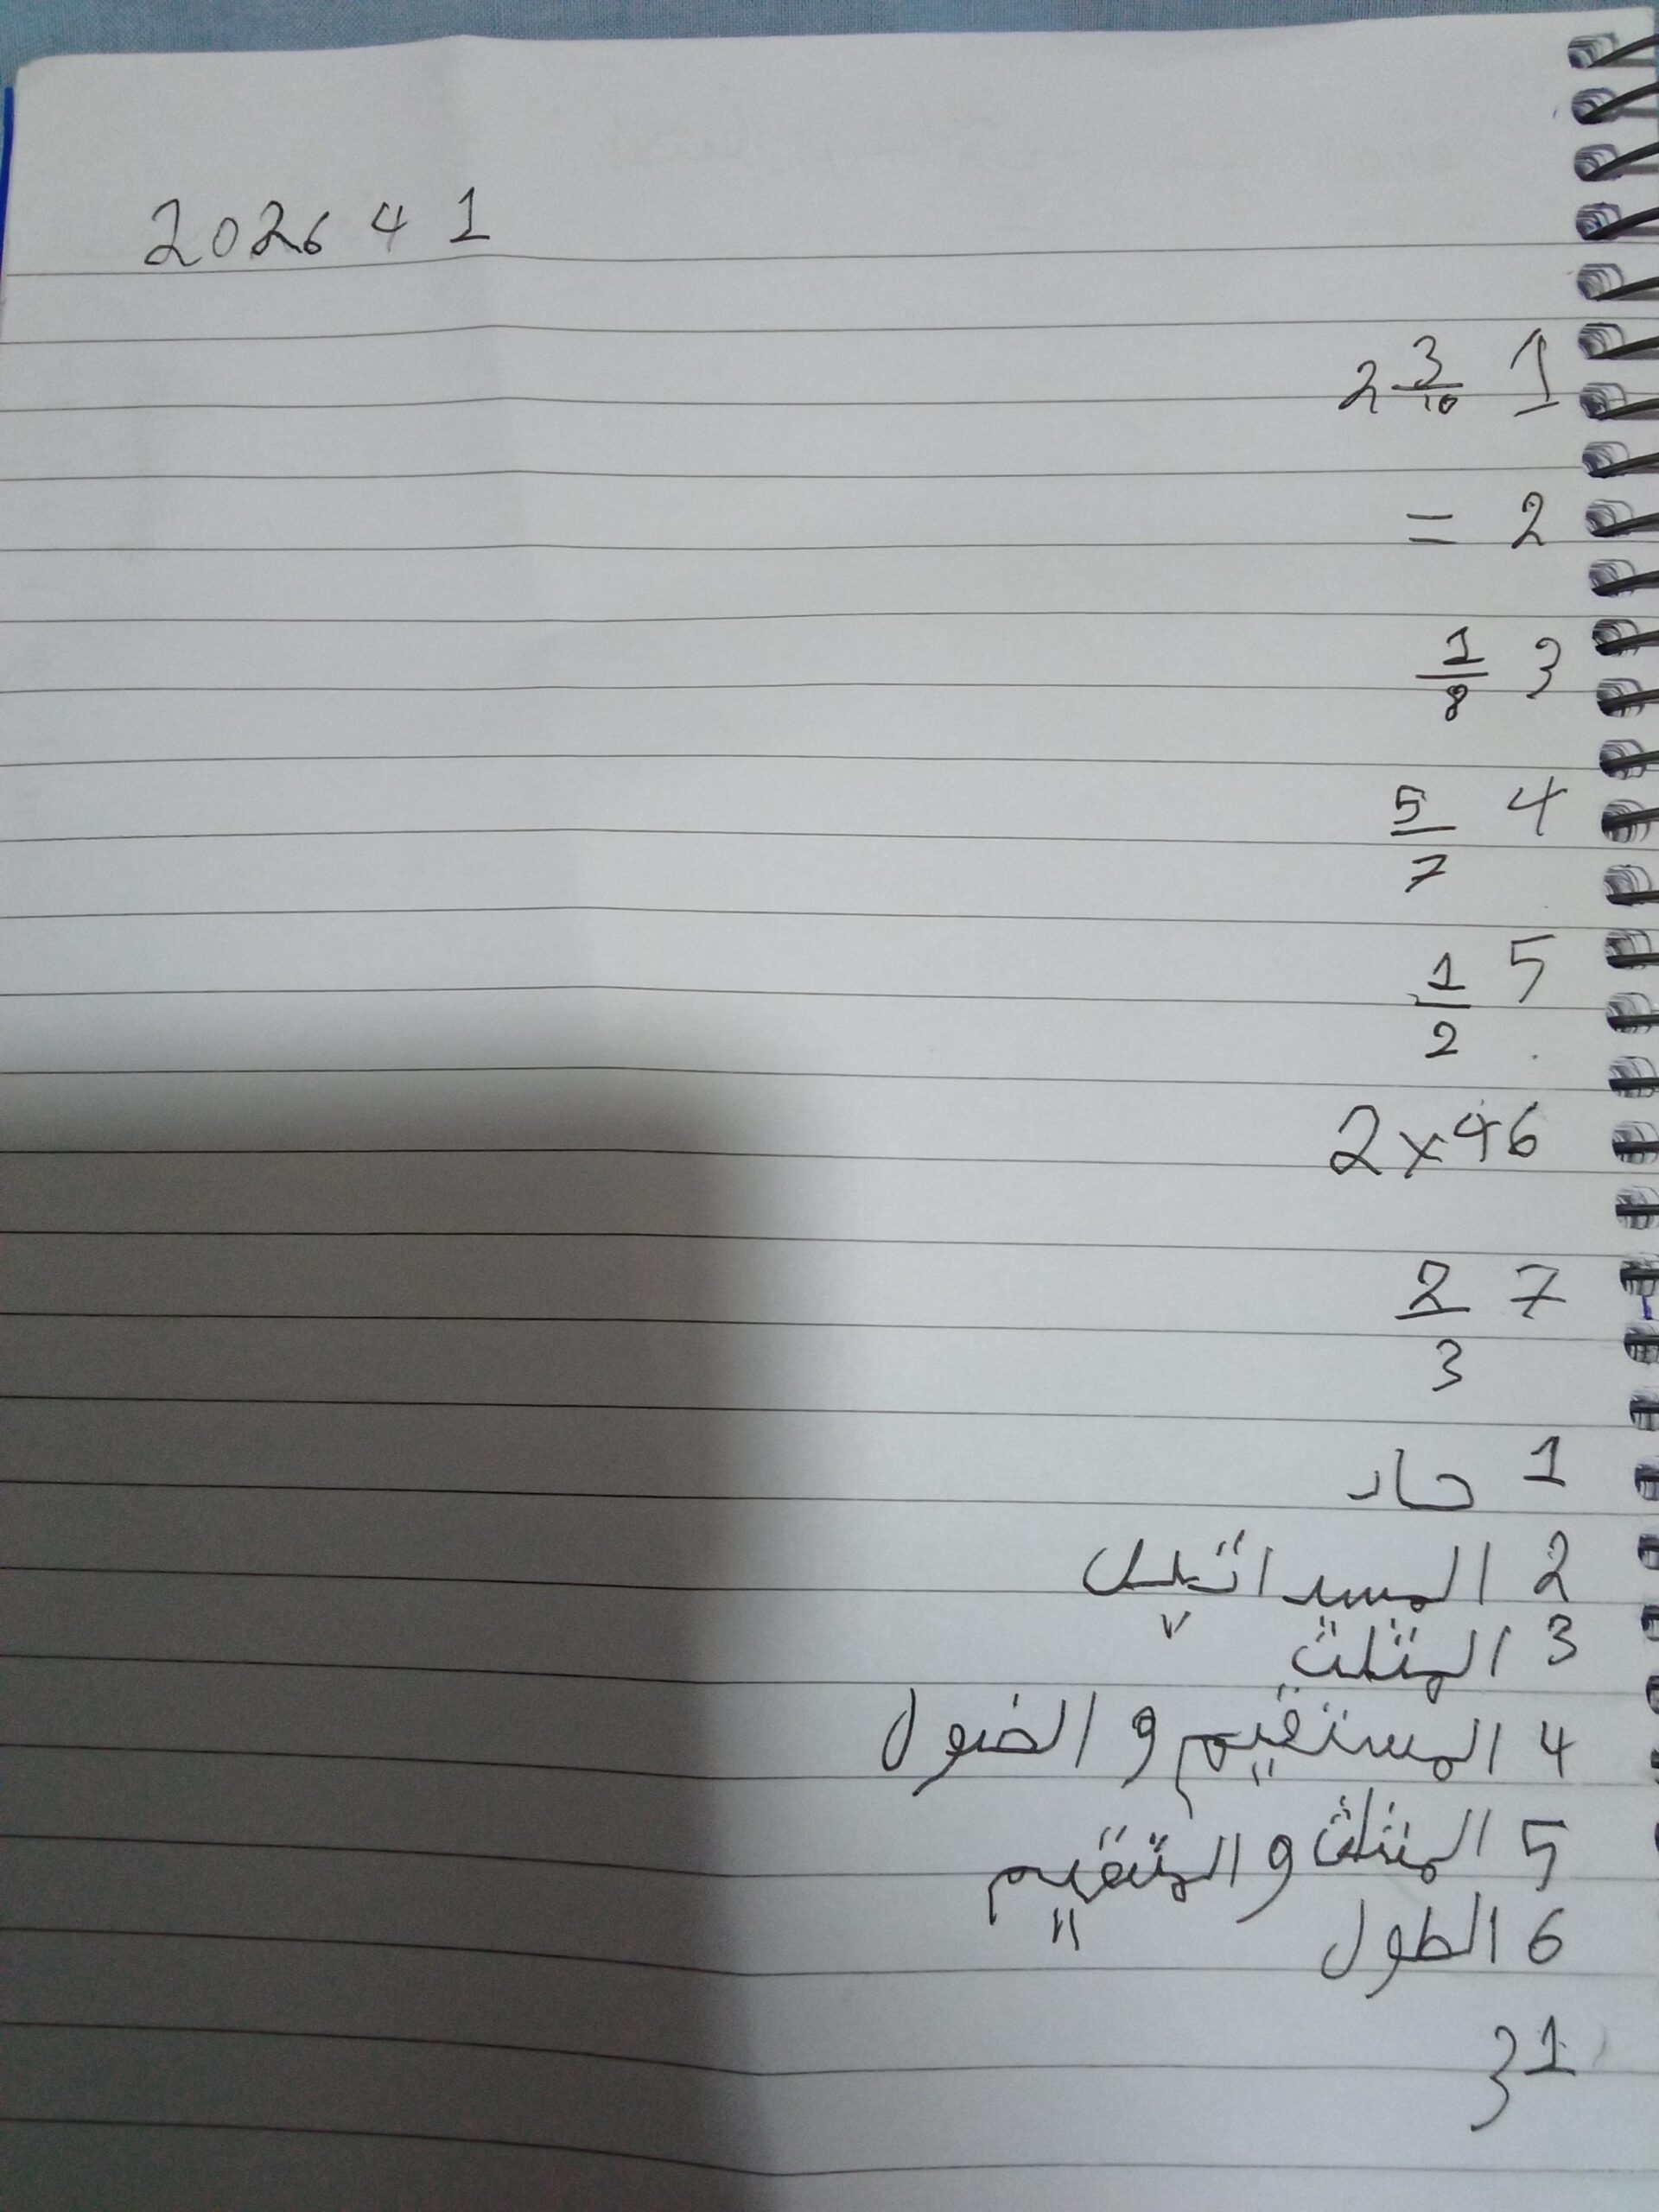 2026 4 1
1 2 3/10
2 =
3 1/8
4 5/7
5 1/2
6 2×4
7 2/3
1 حاد
2 المسداتيل
3 المثلث
4 المستقيم و الضول
5 المثلث و المتقيم
6 الطول
1 3